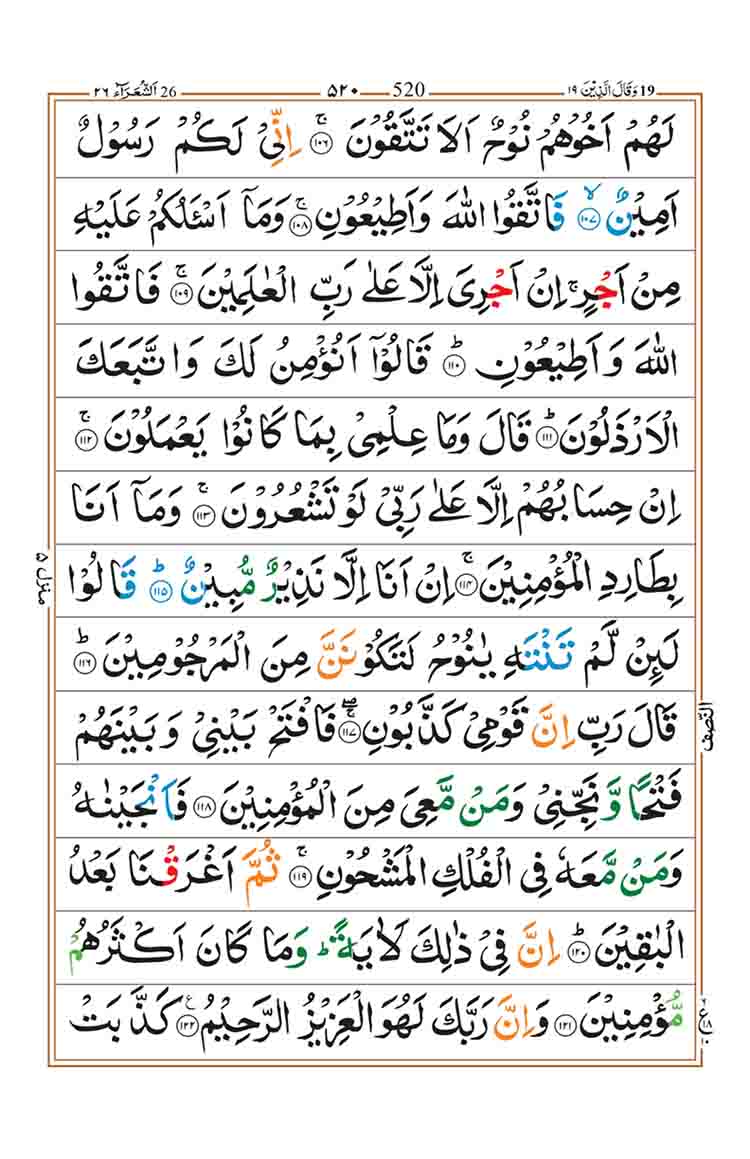 19 وَقَالَ الَّذِيْنَ ١٩ 520 ٥٢٠ 26 اَلشُّعَرَآء ٢٦
لَهُمْ اَخُوْهُمْ نُوْحٌ اَلَا تَتَّقُوْنَ ۚ‏ ١٠٦ اِنِّىْ لَكُمْ رَسُوْلٌ
اَمِيْنٌ ۙ‏ ١٠٧ فَاتَّقُوا اللّٰهَ وَاَطِيْعُوْنِ‌ۚ‏ ١٠٨ وَمَاۤ اَسْئَلُكُمْ عَلَيْهِ
مِنْ اَجْرٍ‌ۚ اِنْ اَجْرِىَ اِلَّا عَلٰى رَبِّ الْعٰلَمِيْنَ‌ۚ‏ ١٠٩ فَاتَّقُوا
اللّٰهَ وَاَطِيْعُوْنِؕ‏ ١١٠ قَالُوْۤا اَنُؤْمِنُ لَكَ وَاتَّبَعَكَ
الْاَرْذَلُوْنَؕ‏ ١١١ قَالَ وَمَا عِلْمِىْ بِمَا كَانُوْا يَعْمَلُوْنَ‌ۚ‏ ١١٢
اِنْ حِسَابُهُمْ اِلَّا عَلٰى رَبِّىْ لَوْ تَشْعُرُوْنَ‌ۚ‏ ١١٣ وَمَاۤ اَنَا
بِطَارِدِ الْمُؤْمِنِيْنَ‌ۚ‏ ١١٤ اِنْ اَنَا اِلَّا نَذِيْرٌ مُّبِيْنٌؕ‏ ١١٥ قَالُوْا
لَئِنْ لَّمْ تَنْتَهِ يٰنُوْحُ لَتَكُوْنَنَّ مِنَ الْمَرْجُوْمِيْنَؕ‏ ١١٦
قَالَ رَبِّ اِنَّ قَوْمِىْ كَذَّبُوْنِ‌ ۖ‌ۚ‏ ١١٧ فَافْتَحْ بَيْنِىْ وَبَيْنَهُمْ
فَتْحًا وَّنَجِّنِىْ وَمَنْ مَّعِىَ مِنَ الْمُؤْمِنِيْنَ‏ ١١٨ فَاَنْجَيْنٰهُ
وَمَنْ مَّعَهٗ فِى الْفُلْكِ الْمَشْحُوْنِ‌ۚ‏ ١١٩ ثُمَّ اَغْرَقْنَا بَعْدُ
الْبٰقِيْنَؕ‏ ١٢٠ اِنَّ فِىْ ذٰلِكَ لَاٰيَةً‌ ؕ وَمَا كَانَ اَكْثَرُهُمْ
مُّؤْمِنِيْنَ‏ ١٢١ وَاِنَّ رَبَّكَ لَهُوَ الْعَزِيْزُ الرَّحِيْمُ‏ ١٢٢ كَذَّبَتْ
منزل ۵
النّصف